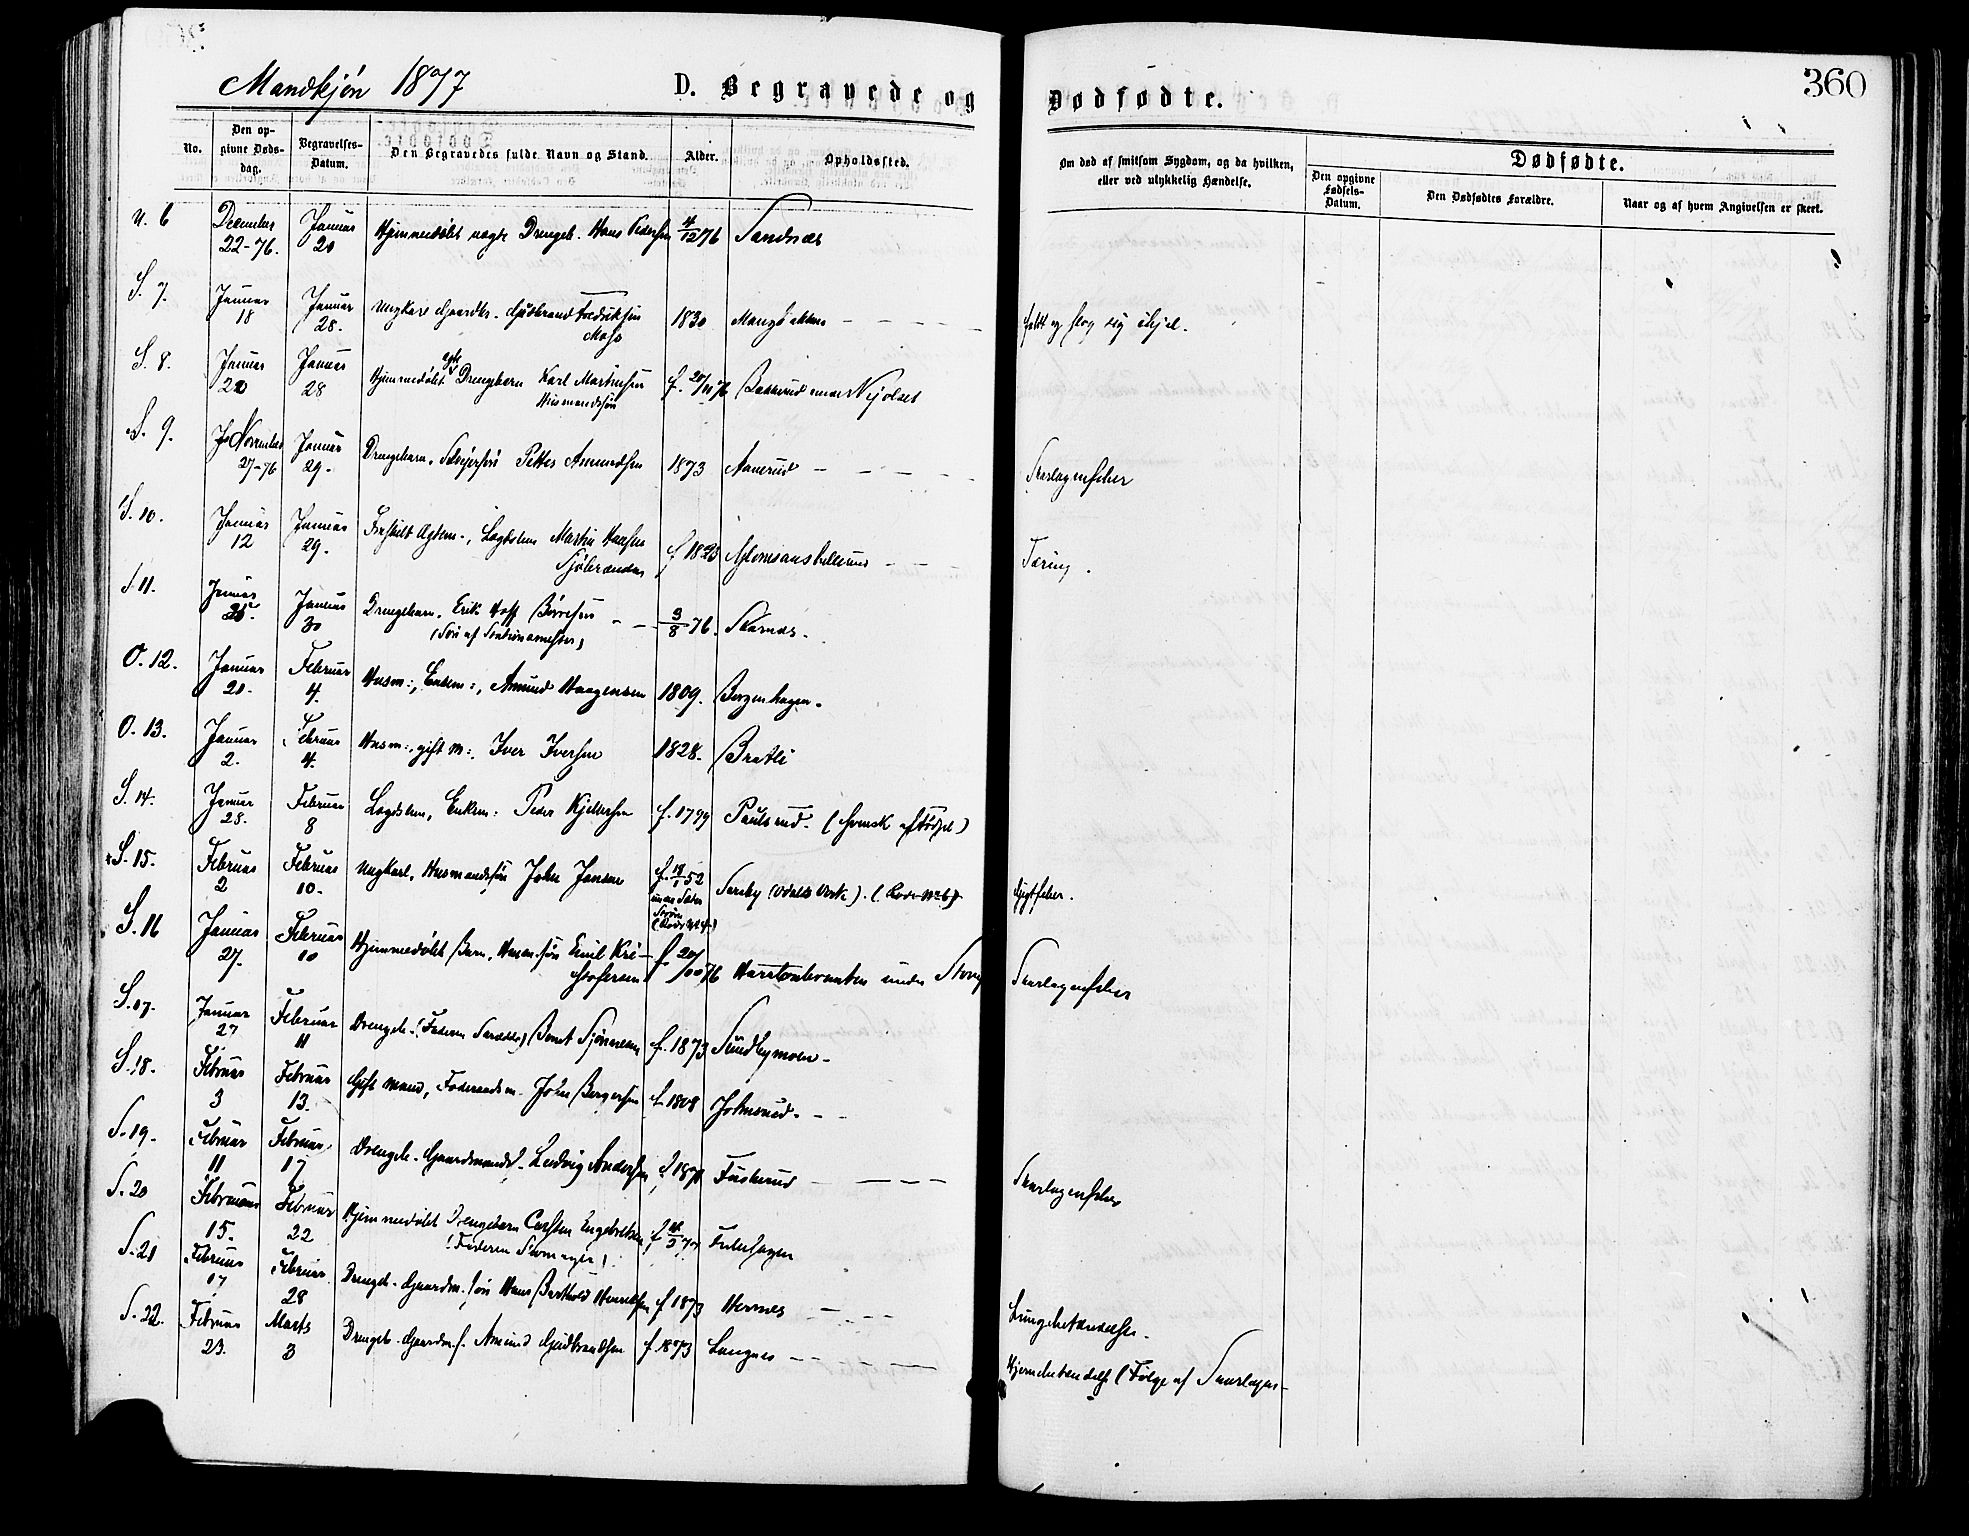 360
Mandkjøn 1877
D. Begravede og Dødfødte.
No.
Den op-
givne Døds-
dag.
Begravelses-
Datum.
Den Begravedes fulde Navn og Stand.
Alder.
Opholdssted.
Om død af smitsom Sygdom, og da hvilken,
eller ved ulykkelig Hændelse.
Dødfødte.
Den opgivne
Fødsels-
Datum.
Den Dødfødtes Forældre.
Naar og af hvem Angivelsen er skeet.
U. 6 December 22-76. Januar 20 Hjemmedøbt uægte Drengeb. Hans Pedersen 4/12 76 Sandnæs
S. 7. Januar 18 Januar 28. Ungkarl Gaardbr. Gudbrand Fredriksen 1830 faldt og slog sig ihjel.
S. 8. Januar 20 Januar 28 Hjemmedøbt ægte Drengebarn Karl Martinsen f. 20/11 76 Bakkerud under
Husmandssøn
S. 9. November 27-76 Januar 29. Drengebarn, Petter Amundsen 1873 Aanerud Skarlagensfeber
S. 10. Januar 12 Januar 29. Fraskilt Ægtem., Lægdslem Martin Hansen Tæring.
S. 11. Januar Januar 30 Drengebarn, Erik Hoff Børresen 3/8 76. Skarnæs.
(Søn af Stationsmester)
O. 12. Januar 20. Februar 4. Husm:, Enkem:, Amund Haagensen 1809. Bergenhagen.
O. 13. Januar 2. Februar 4. Husm:, gift m: Iver Iversen 1828. Bratli
S. 14. Januar 28. Februar 8 Lægdslem, Enkem: Peder Kjeldsen f. 1799 Paulsrud. (svensk af Fødsel)
S. 15. Februar 2 Februar 10. Ungkarl, Husmandssøn John Jansen 52 (Odals Verk). Gigtfeber.
S. 16 Januar 27. Februar 10 Hjemmedøbt Barn, Husm.søn Emil Kri-
stofersen f. 20/10 76 under Skarlagensfeber
S. 17. Januar 27 Februar 11 Drengeb. (Faderen f. 1873 Sundbymoen
S. 18. Februar 3 Februar 13. Gift Mand, Føderaadsm. John Bergersen f. 1808 Johnsrud.
S. 19. Februar 11 Februar 17 Drengeb. Gaardmands. Ludvig Andersen Fuskerud Skarlagensfeber
S. 20 Februar 15. Februar 22 Hjemmedøbt Drengebarn Carsten Engebretsen
(Faderen Skomager)
S. 21 Februar 17 Februar 28 Drengeb. Gaardm. søn Hans Berthold Henriksen f 1873 Hernes Lungebetændelse.
S. 22. Februar 23. Marts 3 Drengeb. Gaardm. s. Amund Gudbrandsen f. 1873 Langnes Hjernebetændelse (Følge af Skarlagens-